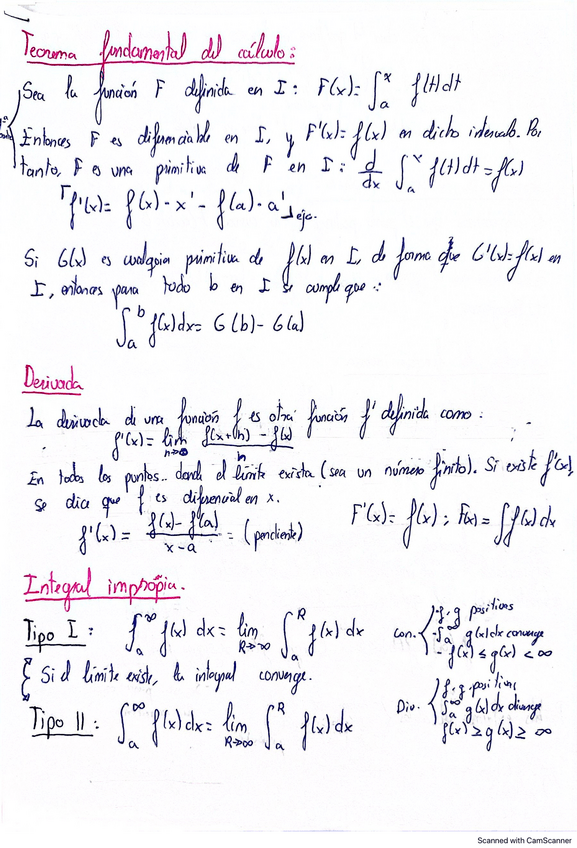 Teorema fundamental del cálculo:
Sea la función F definida en I: F(x)= ∫_a^x f(t)dt
Entonces F es diferenciable en I, y F'(x)= f(x) en dicho intervalo. Por
tanto, F es una primitiva de F en I: d/dx ∫_a^x f(t)dt = f(x)
f'(x)= f(x)·x' - f(a)·a' ej.
Si G(x) es cualquier primitiva de f(x) en I, de forma que G'(x)=f(x) en
I, entonces para todo b en I se cumple que:
∫_a^b f(x)dx= G(b)-G(a)
Derivada
La derivada de una función f es otra función f' definida como:
f'(x)= lim h→∞ f(x+h) - f(x) / h
En todos los puntos.. donde el límite exista (sea un número finito). Si existe f'(x),
se dice que f es diferencial en x.
f'(x) = f(x)-f(a) / x-a = (pendiente) F'(x)= f(x); F(x)= ∫f(x)dx
Integral impropia.
Tipo I: ∫_a^∞ f(x) dx = lim R→∞ ∫_a^R f(x) dx
Con. { f, g positivas
- ∫_a^∞ g(x)dx converge
- f(x) ≤ g(x) < ∞
Si el límite existe, la integral converge.
Tipo II: ∫_a^∞ f(x)dx= lim R→∞ ∫_a^R f(x)dx
Div. { f, g positivas
∫_a^∞ g(x)dx diverge
f(x) ≥ g(x) ≥ ∞
Scanned with CamScanner